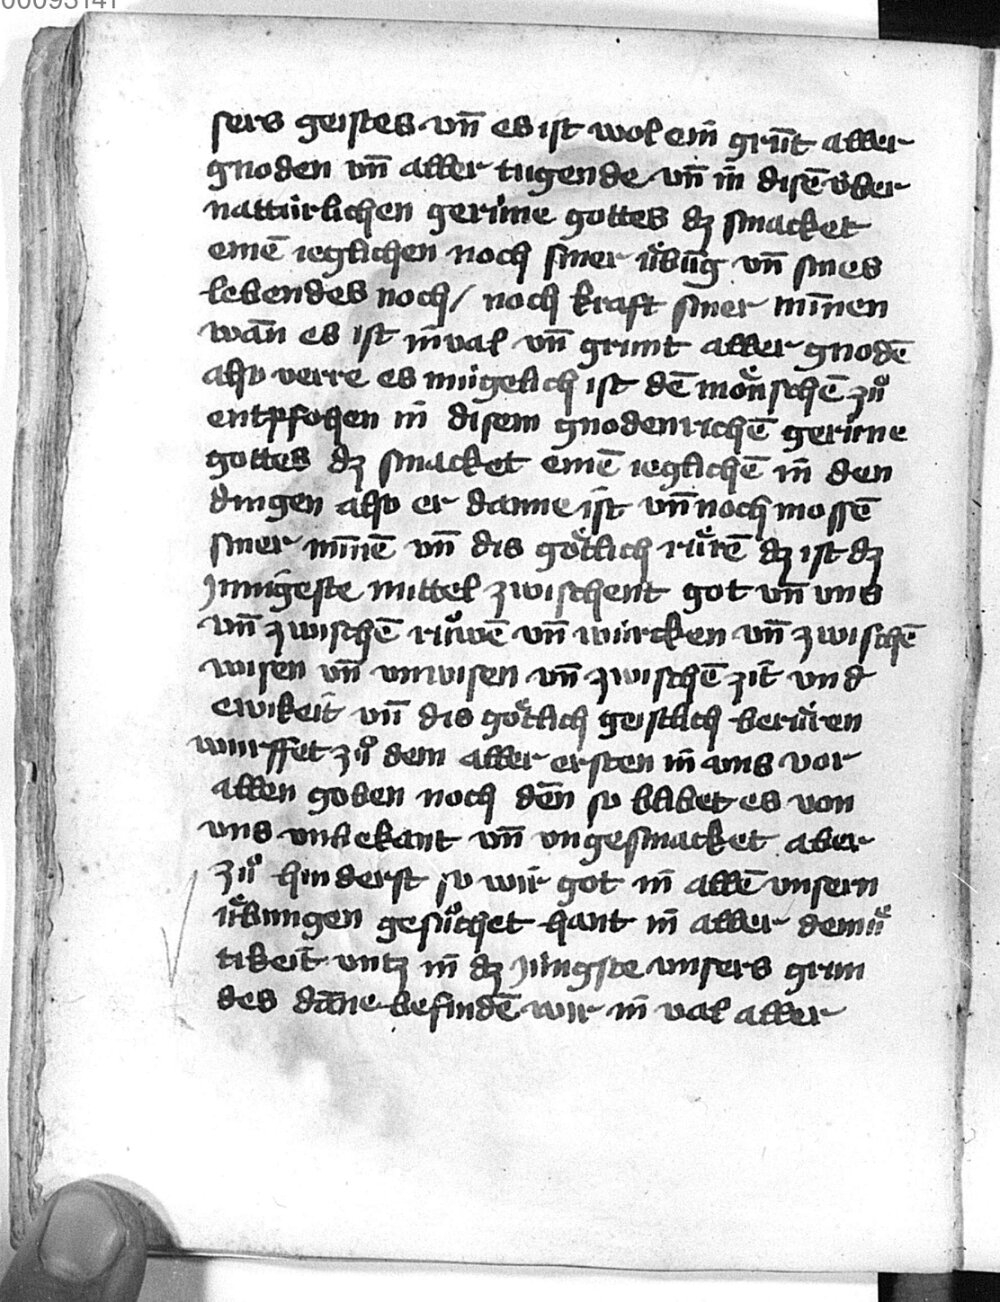 00093141
sers geistes vn̄ es ist wol ein grūt aller
gnoden vn̄ aller tugende vn̄ in disē v́ber
nattúrlichen gerúne gottes dʒ smacket
einē ieglichen noch siner uͤbūg vn̄ sines
lebendes noch / noch kraft siner mīnen
wān es ist inval vn̄ grunt aller gnodē
also verre es múgelich ist dē moͤnschē zuͦ
entpfohen in disem gnodenrichē gerúne
gottes dʒ smacket einē ieglichē in den
dingen also er danne ist vn̄ noch mossē
siner mīnē vn̄ dis goͤtlich ruͤrē dʒ ist dʒ
Jnnigeste mittel zwischent got vn̄ vns
vn̄ zwischē ruͦwē vn̄ wúrcken vn̄ zwischē
wisen vn̄ vnwisen vn̄ zwischē zit vnd
ewikeit vn̄ dis goͤtlich geistlich berúren
wurffet zuͦ dem aller ersten in vns vor
allen goben noch dēn so blibet es von
vns vnbekant vn̄ vngesmacket aber
zuͦ hinderst so wir got in allē vnsern
uͤbungen gesuͦchet hant in aller demuͤ
tikeit vntz in dʒ Jningste vnsers grun
des dāne befindē wir in val aller